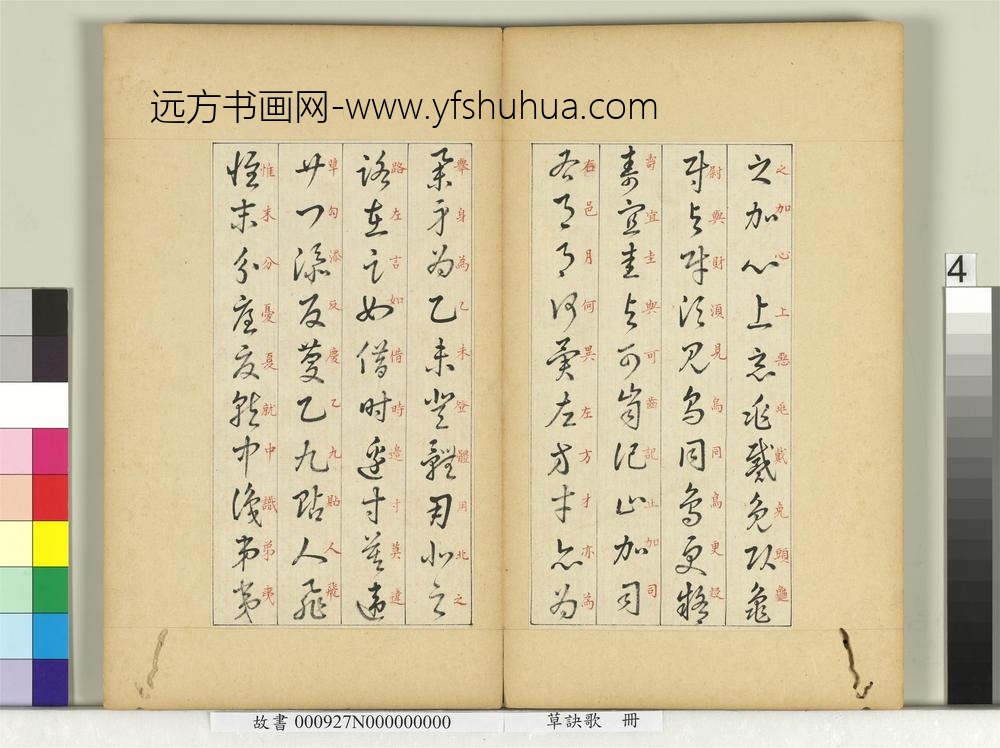 远方书画网-www.yfshuhua.com
之加心上惡兆戴免頭龜
尉與財須見烏同鳥更
壽宜圭與可齒記止加司
右邑月何異左方才亦為
舉身為乙未登體用北之
路左言如借時邊寸莫違
草勾添反慶乙九貼人飛
惟末分憂夏就中識弟夷
4
故書 000927N000000000
草訣歌 冊